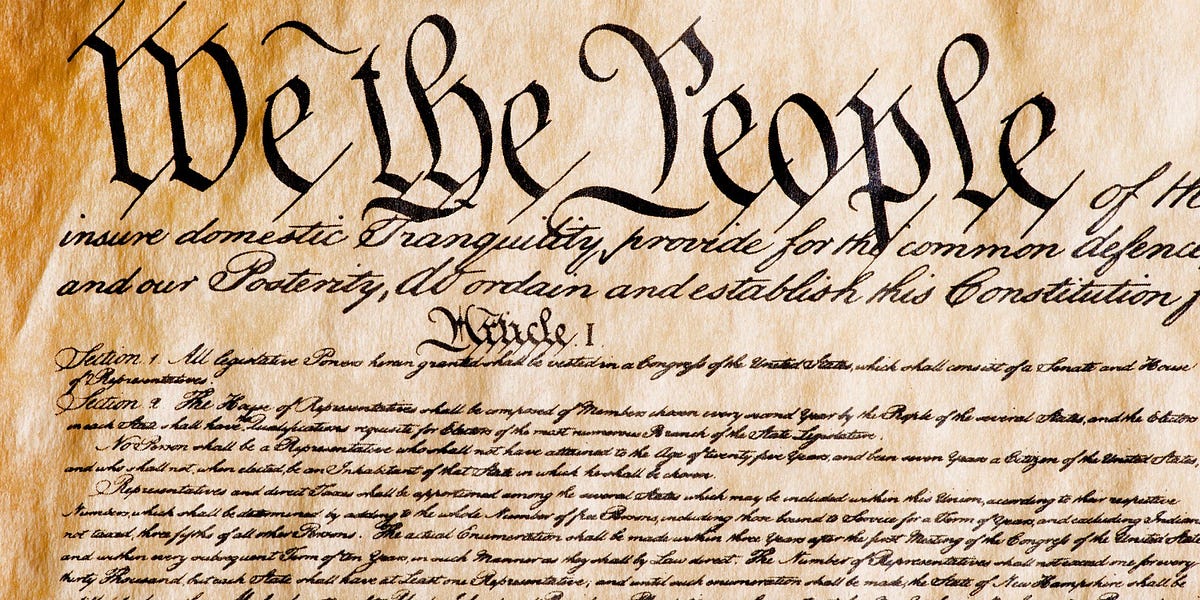 We the People of the
insure domestic Tranquility, provide for the common defence
and our Posterity, do ordain and establish this Constitution f
Article I
Section 1 All legislative Powers herein granted shall be vested in a Congress of the United States, which shall consist of a Senate and House
of Representatives.
Section 2 The House of Representatives shall be composed of Members chosen every second Year by the People of the several States, and the Electors
in each State shall have the Qualifications requisite for Electors of the most numerous Branch of the State Legislature.
No Person shall be a Representative who shall not have attained to the Age of twenty five Years, and been seven Years a Citizen of the United States,
and who shall not, when elected, be an Inhabitant of that State in which he shall be chosen.
Representatives and direct Taxes shall be apportioned among the several States which may be included within this Union, according to their respective
Numbers, which shall be determined by adding to the whole Number of free Persons, including those bound to Service for a Term of Years, and excluding Indians
not taxed, three fifths of all other Persons. The actual Enumeration shall be made within three Years after the first Meeting of the Congress of the United States
and within every subsequent Term of ten Years, in such Manner as they shall by Law direct. The Number of Representatives shall not exceed one for every
thirty Thousand, but each State shall have at Least one Representative; and until such enumeration shall be made, the State of New Hampshire shall be